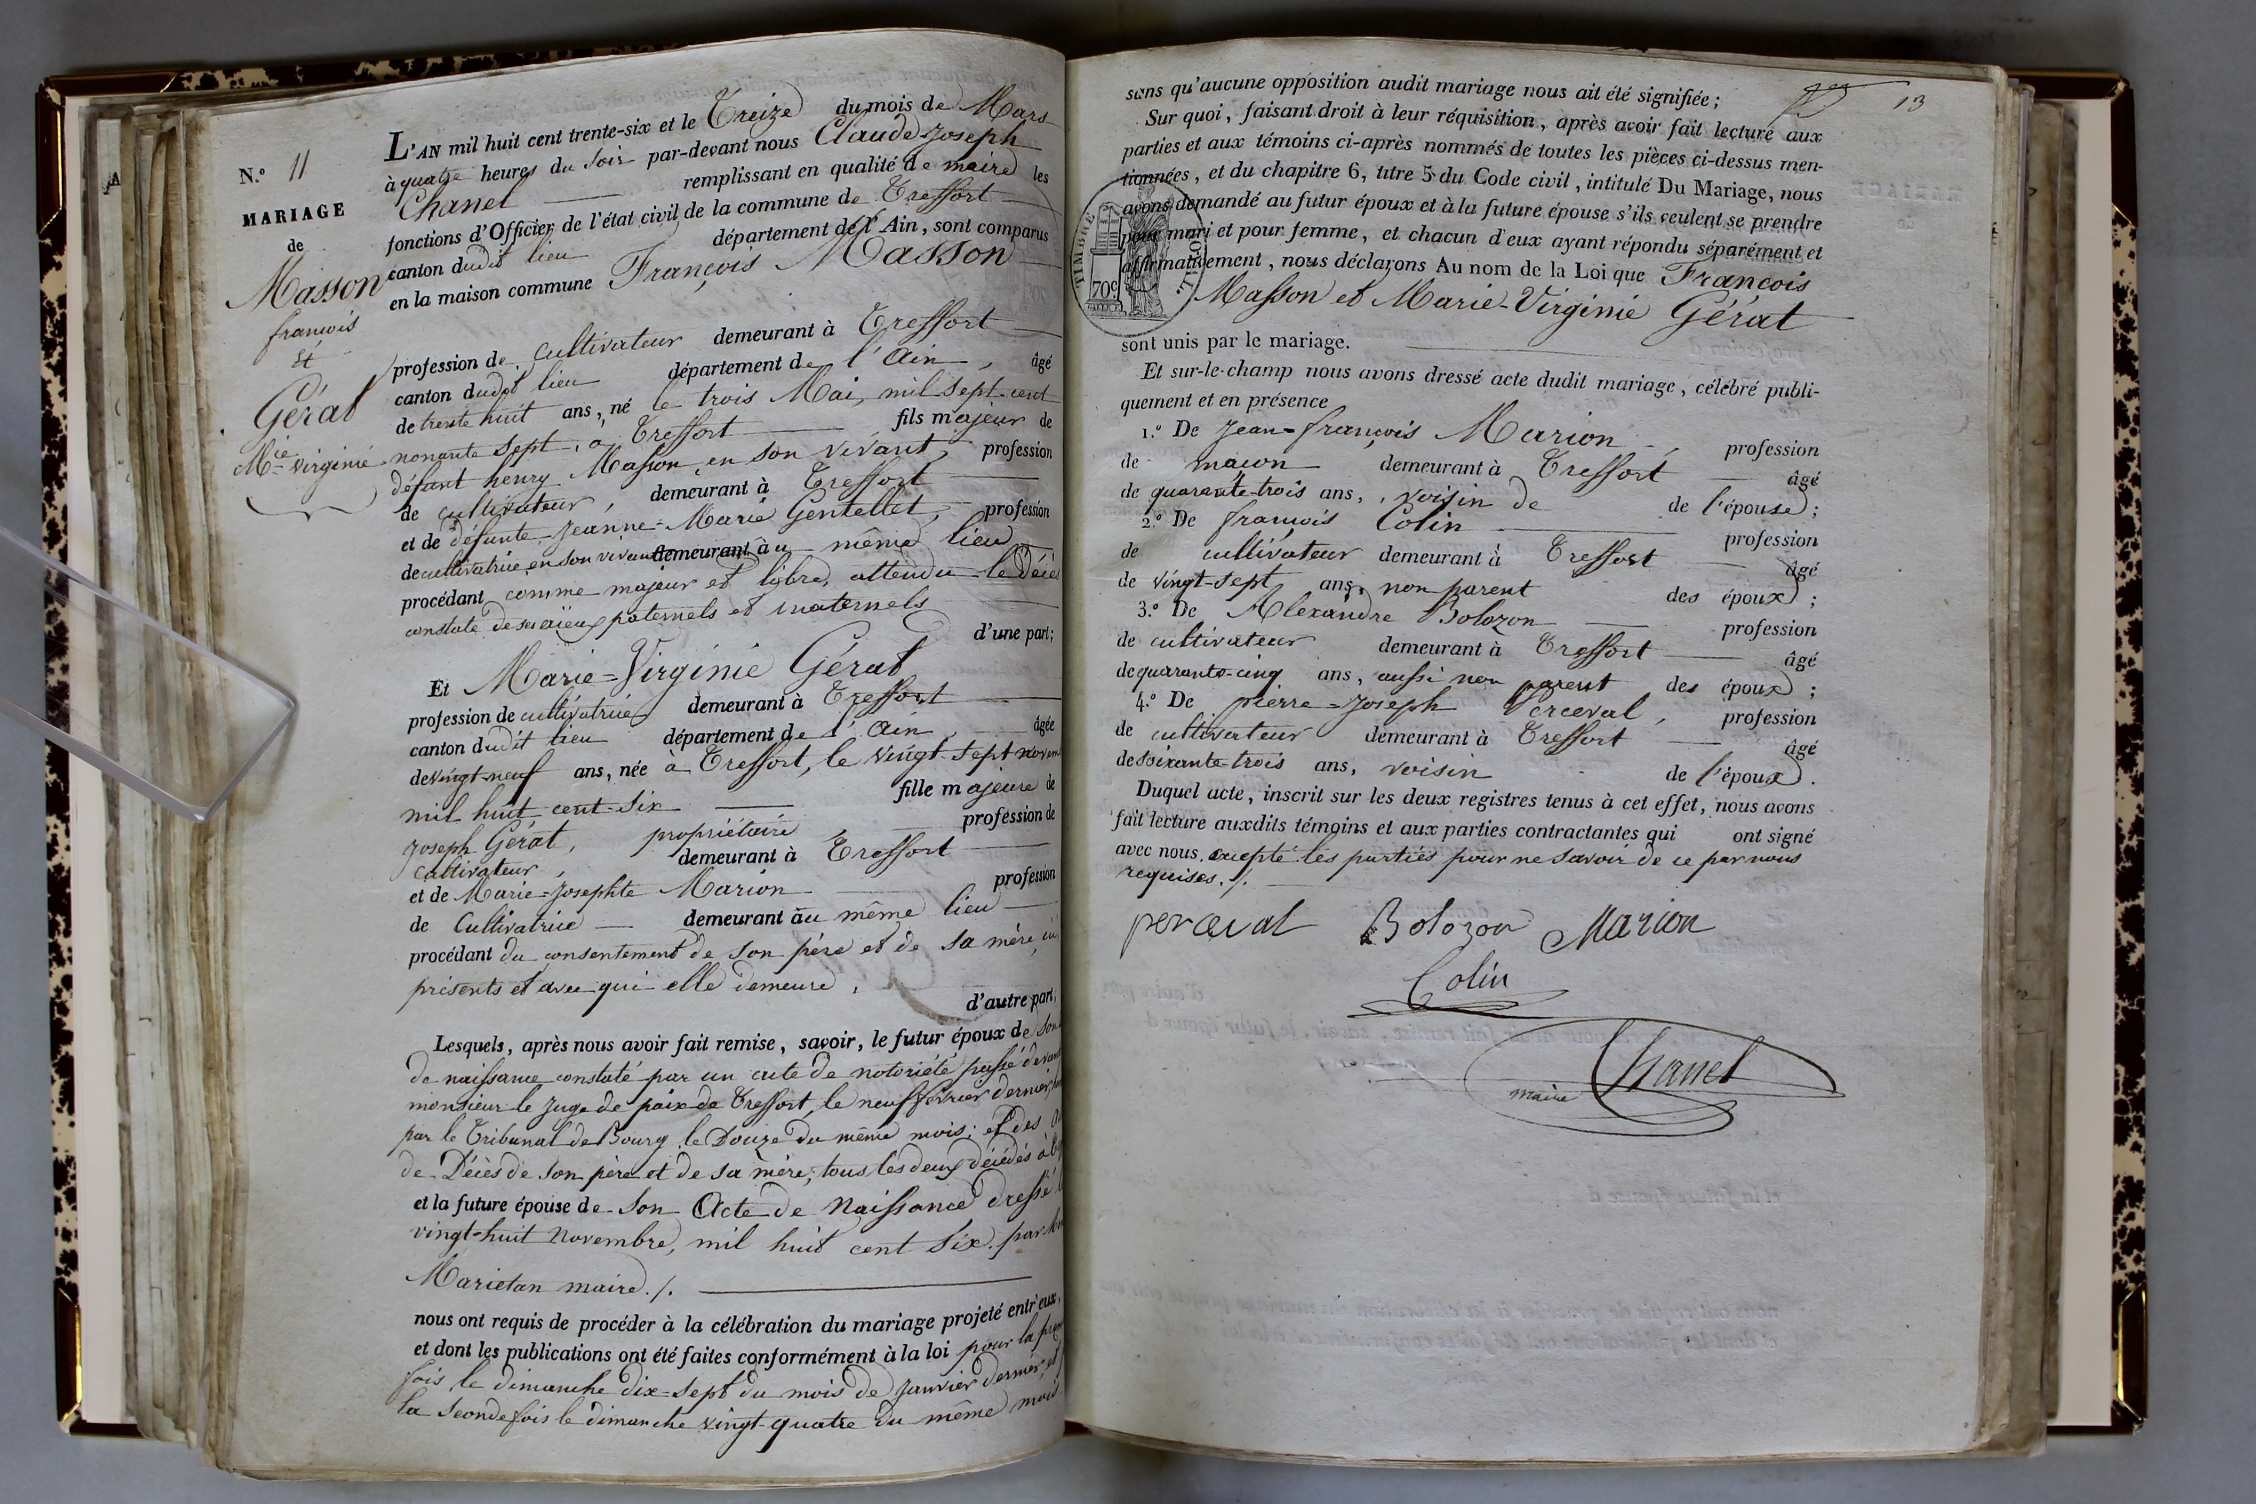 N.º 11
MARIAGE
de
Masson
françois
et
Gérat
M.ie Virginie
L'AN mil huit cent trente-six et le Treize du mois de Mars
à quatre heures du soir par-devant nous Claude-Joseph
Chanel remplissant en qualité de maire les
fonctions d'Officier de l'état civil de la commune de Treffort
canton dudit lieu département de l'Ain, sont comparus
en la maison commune François Masson
profession de cultivateur demeurant à Treffort
canton dudit lieu département de l'Ain, âgé
de trente huit ans, né le trois Mai, mil sept-cent
nonante sept, à Treffort fils majeur de
défunt henry Masson en son vivant, profession
de cultivateur, demeurant à Treffort
et de défunte Jeanne-Marie Gentellet, profession
de cultivatrice en son vivant demeurant au même lieu
procédant comme majeur et libre, attendu le Décès
constaté de ses aïeux paternels et maternels
d'une part;
Et Marie-Virginie Gérat
profession de cultivatrice demeurant à Treffort
canton dudit lieu département de l'Ain, âgée
de vingt-neuf ans, née à Treffort, le vingt-sept novem
mil huit cent-six fille majeure de
Joseph Gérat, propriétaire profession de
cultivateur, demeurant à Treffort
et de Marie-Josephte Marion profession
de Cultivatrice demeurant au même lieu
procédant du consentement de son père et de sa mère, ici
présents et avec qui elle demeure,
d'autre part;
Lesquels, après nous avoir fait remise, savoir, le futur époux de son
de naissance constaté par un acte de notoriété passé devant
monsieur le Juge de paix de Treffort, le neuf février dernier,
par le Tribunal de Bourg le Douze du même mois; et des
de Décès de son père et de sa mère, tous les deux décédés à
et la future épouse de son Acte de Naissance dressé
vingt-huit Novembre, mil huit cent six. par
Marietan maire./.
nous ont requis de procéder à la célébration du mariage projeté entr'eux,
et dont les publications ont été faites conformément à la loi pour la
fois le dimanche dix-sept du mois de Janvier dernier, et
la seconde fois le dimanche vingt-quatre du même mois
13
sans qu'aucune opposition audit mariage nous ait été signifiée;
Sur quoi, faisant droit à leur réquisition, après avoir fait lecture aux
parties et aux témoins ci-après nommés de toutes les pièces ci-dessus men-
tionnées, et du chapitre 6, titre 5 du Code civil, intitulé Du Mariage, nous
avons demandé au futur époux et à la future épouse s'ils veulent se prendre
pour mari et pour femme, et chacun d'eux ayant répondu séparément et
affirmativement, nous déclarons Au nom de la Loi que François
TIMBRE ROYAL
70c
Masson et Marie-Virginie Gérat
sont unis par le mariage.
Et sur-le-champ nous avons dressé acte dudit mariage, célébré publi-
quement et en présence
1.º De Jean-françois Marion, profession
de maçon demeurant à Treffort âgé
de quarante-trois ans, voisin de de l'épouse;
2.º De françois Colin profession
de cultivateur demeurant à Treffort âgé
de vingt-sept ans, non parent des époux;
3.º De Alexandre Bolozon profession
de cultivateur demeurant à Treffort âgé
de quarante-cinq ans, aussi non parent des époux;
4.º De pierre-Joseph Perceval, profession
de cultivateur demeurant à Treffort âgé
de soixante-trois ans, voisin de l'époux.
Duquel acte, inscrit sur les deux registres tenus à cet effet, nous avons
fait lecture auxdits témoins et aux parties contractantes qui ont signé
avec nous, excepté les parties pour ne savoir de ce par nous
requises./.
perceval Bolozon Marion
Colin
Chanel
maire